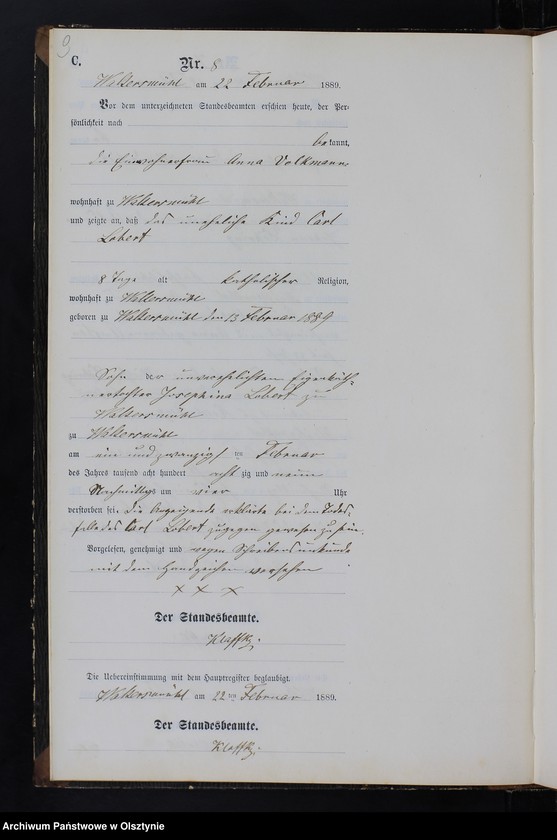 9
C.
Nr. 8
Waltersmühl am 22 Februar 1889.
Vor dem unterzeichneten Standesbeamten erschien heute, der Per-
sönlichkeit nach
bekannt,
die Einwohnerfrau Anna Volkmann
wohnhaft zu Waltersmühl
und zeigte an, daß das uneheliche Kind Carl
Lobert
8 Tage alt katholischer Religion,
wohnhaft zu Waltersmühl
geboren zu Waltersmühl den 13 Februar 1889
Sohn der unverehelichten Eigenkäth-
nertochter Josephina Lobert zu
Waltersmühl
zu Waltersmühl
am ein und zwanzigsten Februar
des Jahres tausend acht hundert achtzig und neun
Nachmittags um vier Uhr
verstorben sei. Die Anzeigende erklärte bei dem Todes-
falle des Carl Lobert zugegen gewesen zu sein.
Vorgelesen, genehmigt und wegen Schreibensunkunde
mit dem Handzeichen versehen
× × ×
Der Standesbeamte.
Klaffki
Die Uebereinstimmung mit dem Hauptregister beglaubigt.
Waltersmühl am 22ten Februar 1889.
Der Standesbeamte.
Klaffki
Archiwum Państwowe w Olsztynie